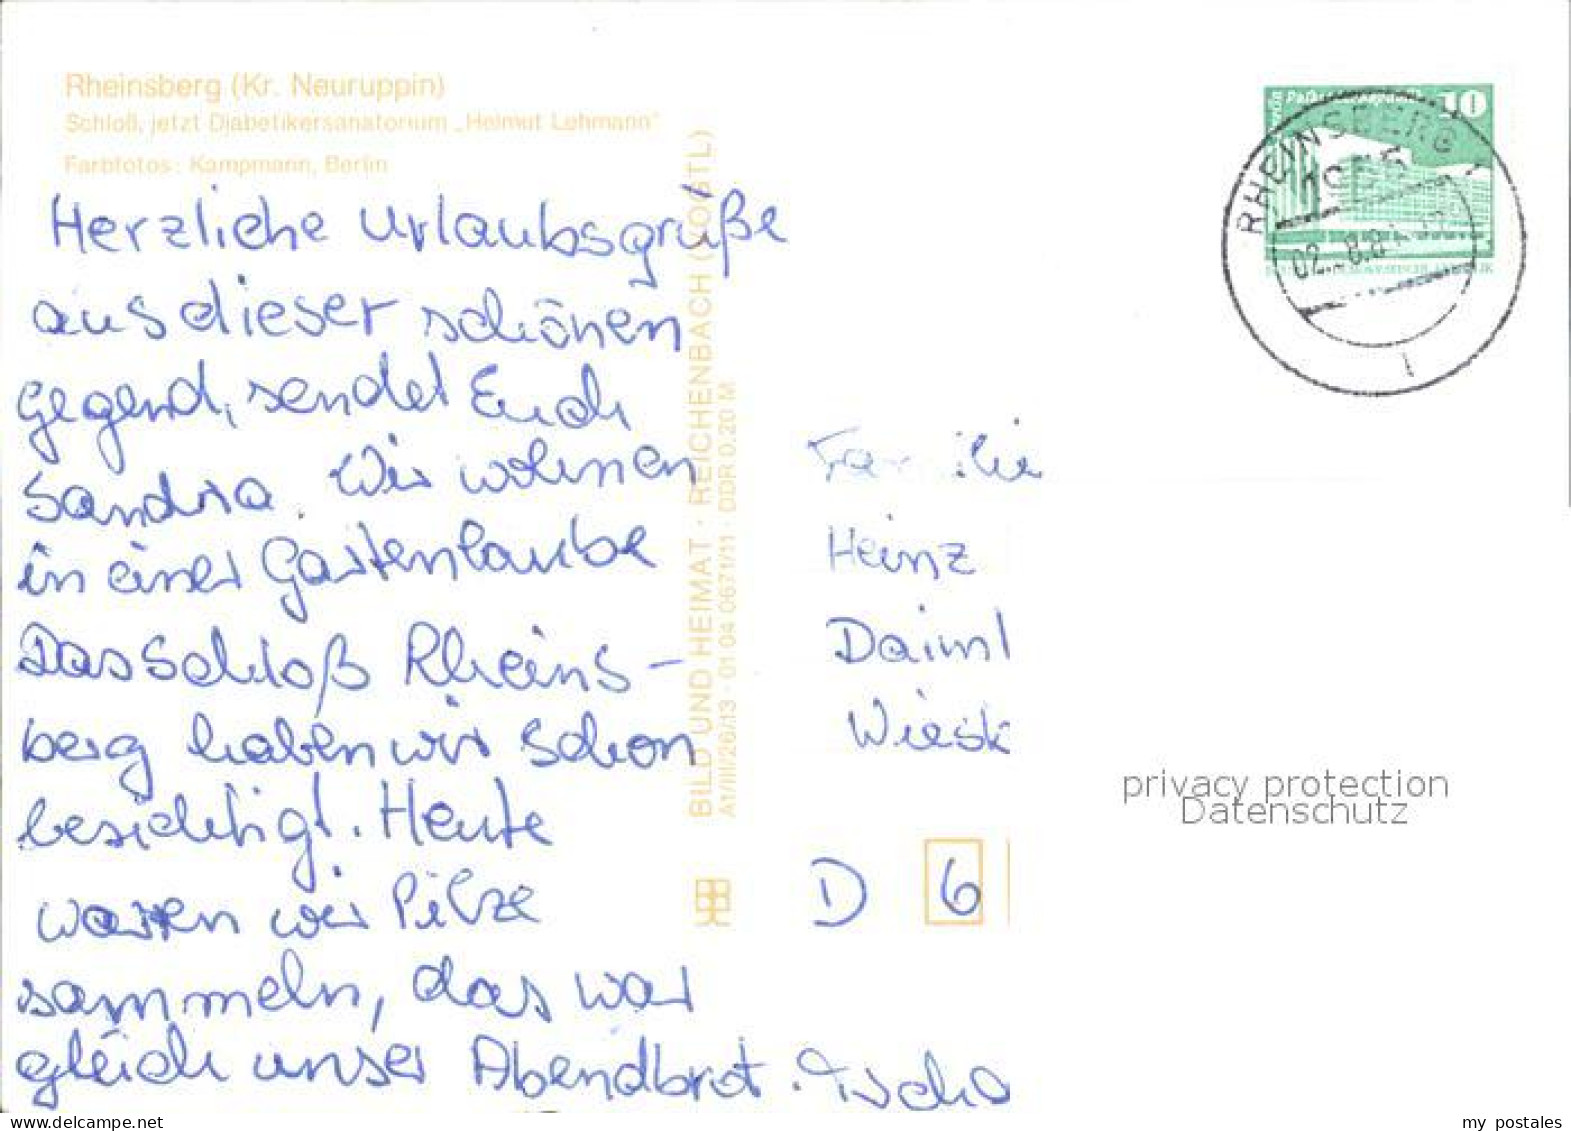 Rheinsberg (Kr. Neuruppin)
Schloß, jetzt Diabetikersanatorium „Helmut Lehmann"
Farbfotos: Kampmann, Berlin
Herzliche Urlaubsgrüße
aus dieser schönen
gegend, sendet Euch
Sandra. Wir wohnen
in einer Gartenlaube
Das Schloß Rheins-
berg haben wir schon
besichtigt. Heute
waren wir Pilze
sammeln, das war
gleich unser Abendbrot. Tscho
BILD UND HEIMAT · REICHENBACH (VOGTL)
A1/III/26/13 · 01 04 0671/11 · DDR 0,20 M
10
RHEINSBERG 1
1955
Familie
Heinz
Daiml
Wiesk
D 6
privacy protection
Datenschutz
my postales